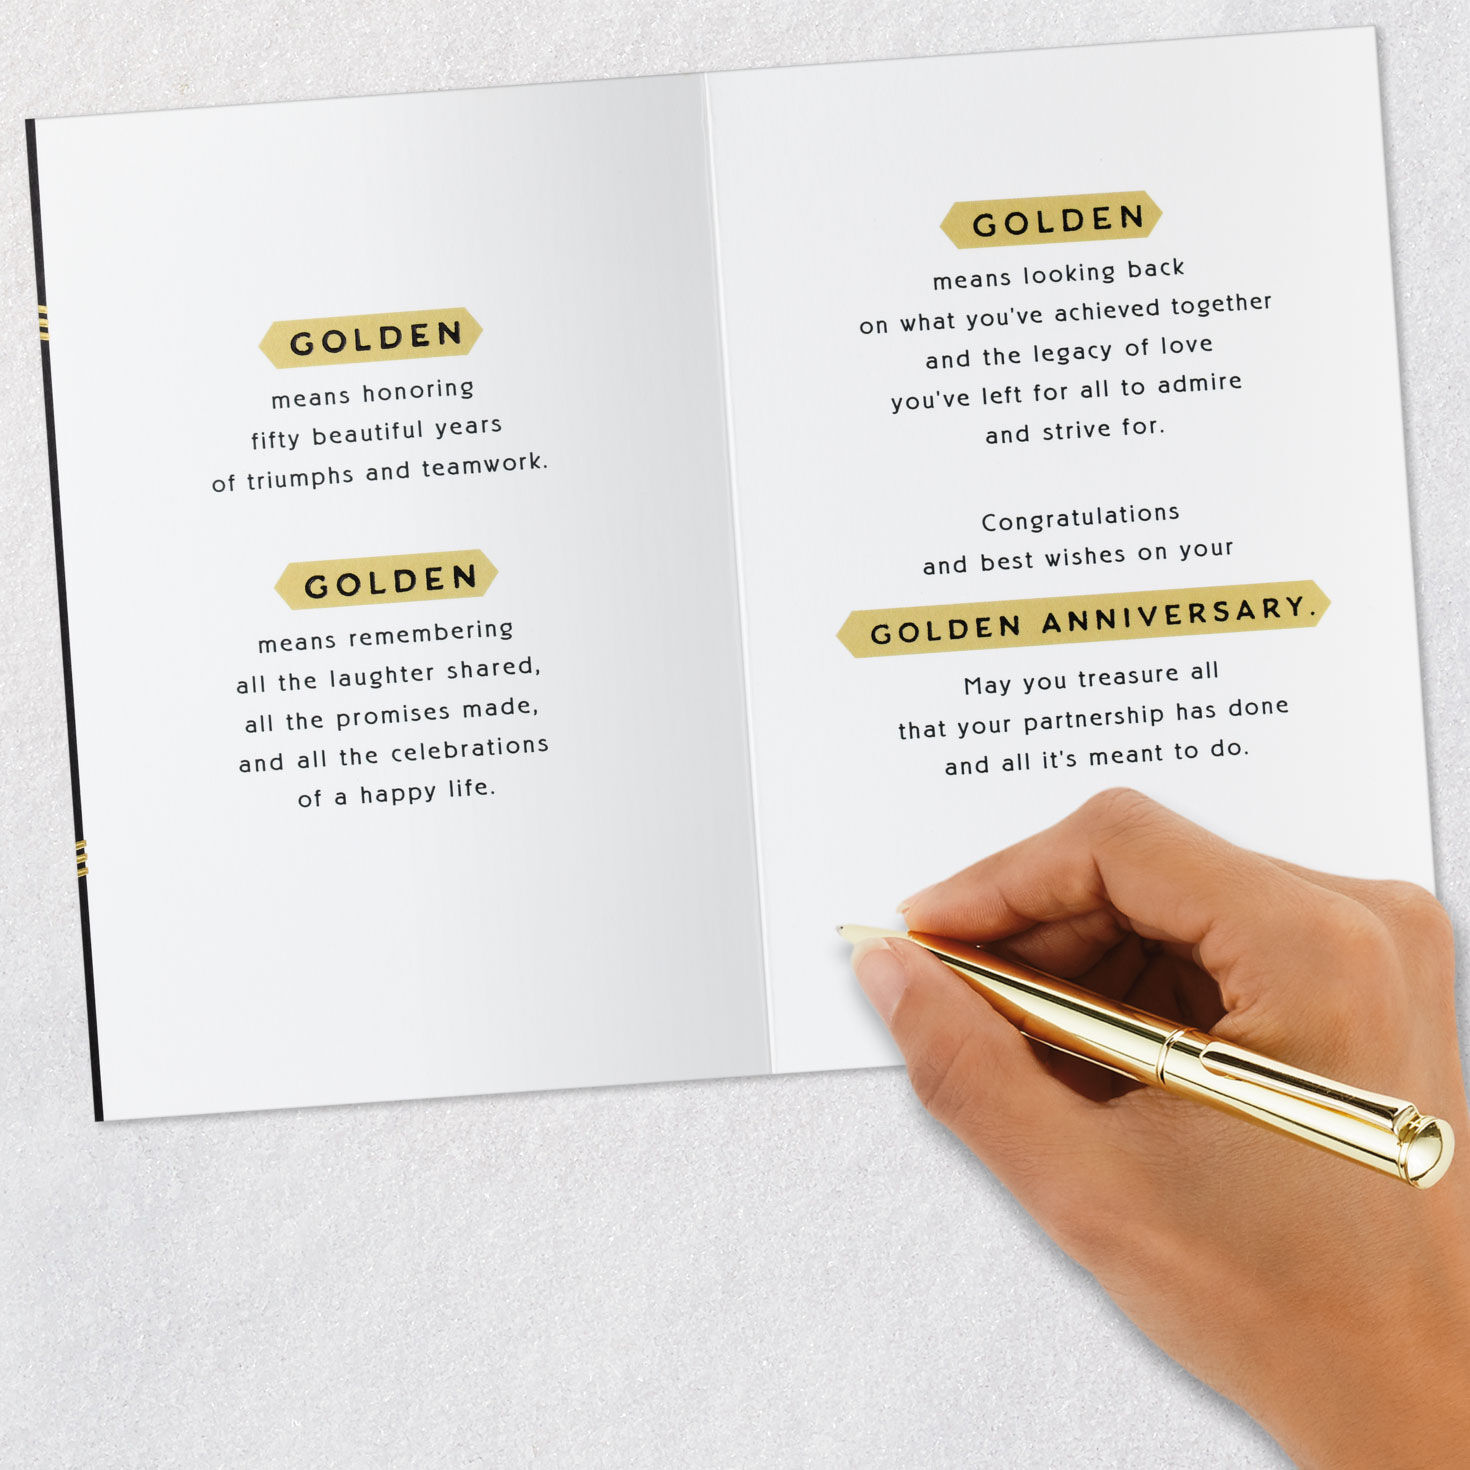 GOLDEN
means honoring
fifty beautiful years
of triumphs and teamwork.
GOLDEN
means remembering
all the laughter shared,
all the promises made,
and all the celebrations
of a happy life.
GOLDEN
means looking back
on what you've achieved together
and the legacy of love
you've left for all to admire
and strive for.
Congratulations
and best wishes on your
GOLDEN ANNIVERSARY.
May you treasure all
that your partnership has done
and all it's meant to do.